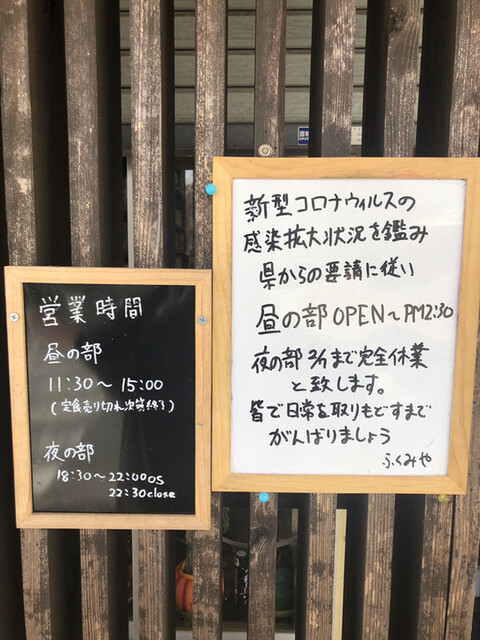 営業時間
昼の部
11:30〜15:00
(定食売り切れ次第終了)
夜の部
18:30〜22:00OS
22:30close
新型コロナウィルスの
感染拡大状況を鑑み
県からの要請に従い
昼の部OPEN〜PM2:30
夜の部 3/1まで完全休業
と致します。
皆で日常を取りもどすまで
がんばりましょう
ふくみや